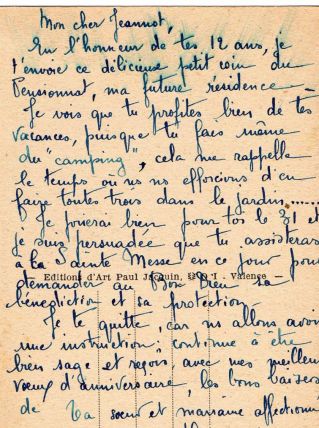 Mon cher Jeannot,
En l'honneur de tes 12 ans, je
t'envoie ce délicieux petit coin du
Pensionnat, ma future résidence -
Je vois que tu profites bien de tes
vacances, puisque tu fais même
du "camping", cela me rappelle
le temps où ns ns efforcions d'en
faire toutes trois dans le jardin......
Je penserai bien pour toi le 31 et
je suis persuadée que tu assisteras
à la Sainte Messe en ce jour pour
Editions d'Art Paul Jacquin, - Valence -
demander au Bon Dieu sa
bénédiction et sa protection -
Je te quitte, car ns allons avoir
une instruction; continue à être
bien sage et reçois, avec mes meilleurs
vœux d'anniversaire, les bons baisers
de ta sœur et marraine affectionnée